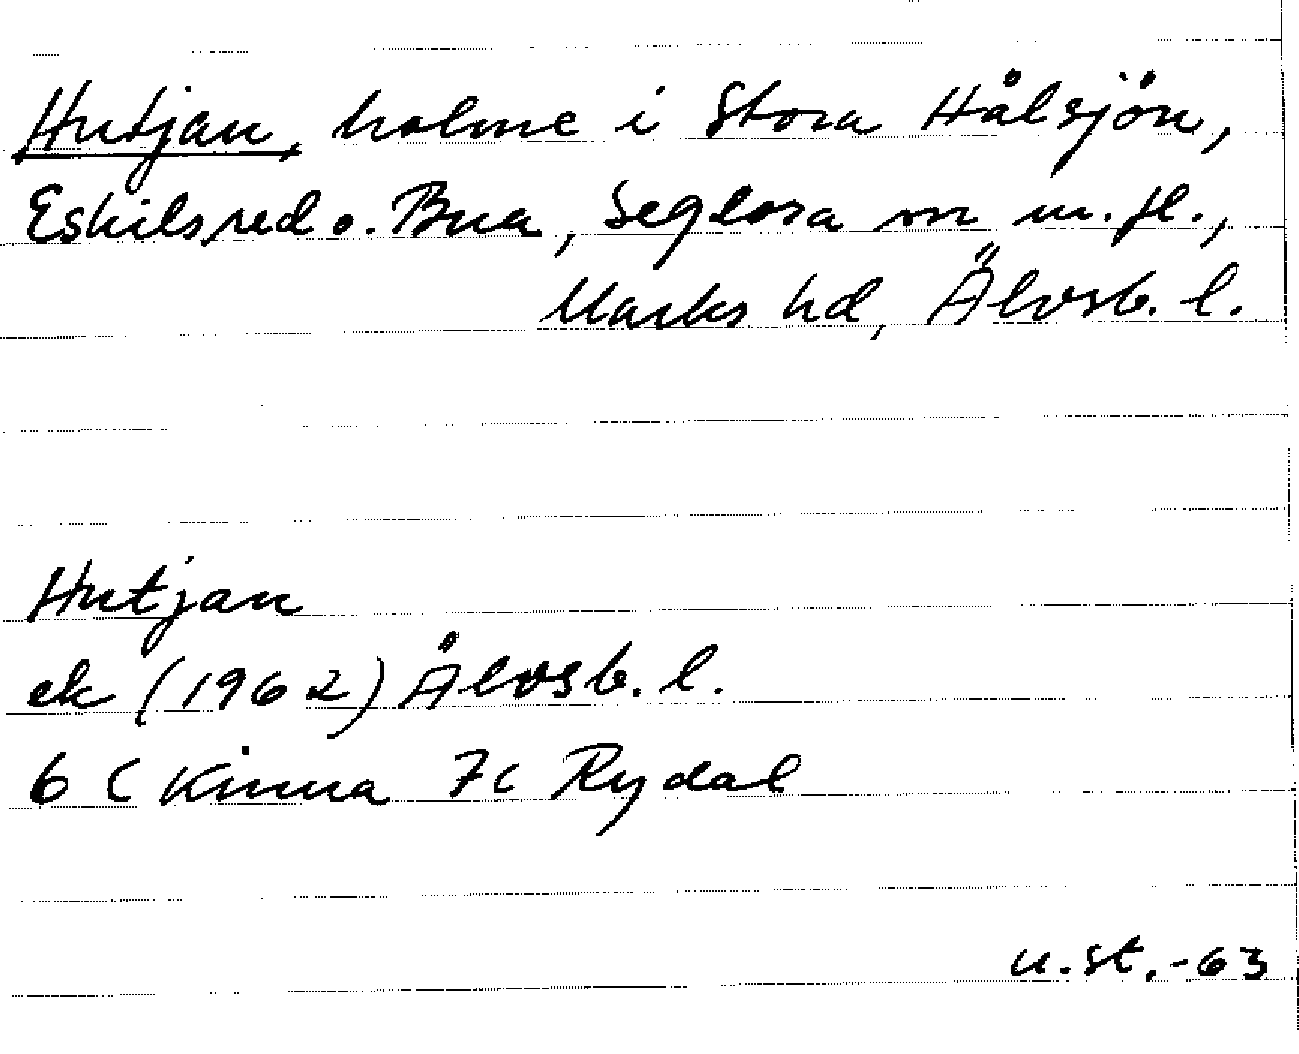 Hutjan, holme i Stora Hålsjön,
Eskilsred o. Bua, Seglora sn m. fl.,
Marks hd, Älvsb. l.
Hutjan
ek (1962) Älvsb. l.
6 C Kinna 7c Rydal
u.st.-63